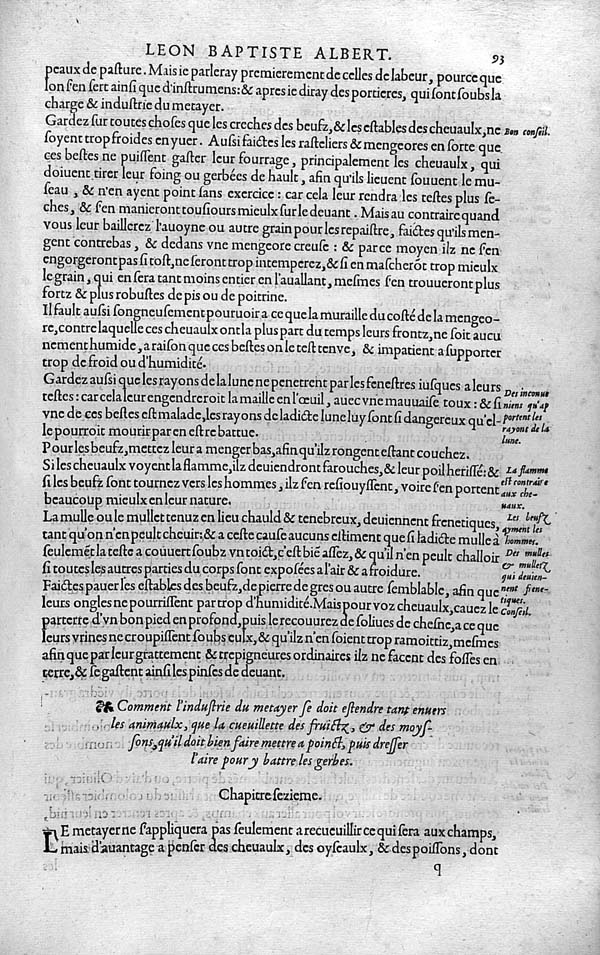 LEON BAPTISTE ALBERT. 93
peaux de pasture. Mais ie parleray premierement de celles de labeur, pource que
lon s'en sert ainsi que d'instrumens: & apres ie diray des portieres, qui sont soubs la
charge & industrie du metayer.
Gardez sur toutes choses que les creches des beufz, & les estables des cheuaulx, ne
soyent trop froides en yuer. Aussi faictes les rasteliers & mengeores en sorte que
ces bestes ne puissent gaster leur fourrage, principalement les cheuaulx, qui
doiuent tirer leur foing ou gerbées de hault, afin qu'ils lieuent souuent le mu-
seau, & n'en ayent point sans exercice: car cela leur rendra les testes plus se-
ches, & s'en manieront tousiours mieulx sur le deuant. Mais au contraire quand
vous leur baillerez l'auoyne ou autre grain pour les repaistre, faictes qu'ils men-
gent contrebas, & dedans vne mengeore creuse: & par ce moyen ilz ne s'en
engorgeront pas si tost, ne seront trop intemperez, & si en mascherōt trop mieulx
le grain, qui en sera tant moins entier en l'auallant, mesmes s'en trouueront plus
fortz & plus robustes de pis ou de poitrine.
Il fault aussi songneusement pouruoir a ce que la muraille du costé de la mengeo-
re, contre laquelle ces cheuaulx ont la plus part du temps leurs frontz, ne soit aucu
nement humide, a raison que ces bestes on le test tenve, & impatient a supporter
trop de froid ou d'humidité.
Gardez aussi que les rayons de la lune ne penetrent par les fenestres iusques a leurs
testes: car cela leur engendreroit la maille en l'œuil, auec vne mauuaise toux: & si
vne de ces bestes est malade, les rayons de ladicte lune luy sont si dangereux qu'el-
le pourroit mourir par en estre battue.
Pour les beufz, mettez leur a menger bas, afin qu'ilz rongent estant couchez.
Si les cheuaulx voyent la flamme, ilz deuiendront farouches, & leur poil herissé: &
si les beufz sont tournez vers les hommes, ilz s'en resiouyssent, voire s'en portent
beaucoup mieulx en leur nature.
La mulle ou le mullet tenuz en lieu chauld & tenebreux, deuiennent frenetiques,
tant qu'on n'en peult cheuir: & a ceste cause aucuns estiment que si ladicte mulle a
seulemēt la teste a couuert soubz vn toict, c'est biē assez, & qu'il n'en peult challoir
si toutes les autres parties du corps sont exposées a l'air & a froidure.
Faictes pauer les estables des beufz, de pierre de gres ou autre semblable, afin que
leurs ongles ne pourrissent par trop d'humidité. Mais pour voz cheuaulx, cauez le
parterre d'vn bon pied en profond, puis le recouurez de soliues de chesne, a ce que
leurs vrines ne croupissent soubs eulx, & qu'ilz n'en soient trop ramoittiz, mesmes
afin que par leur grattement & trepigneures ordinaires ilz ne facent des fosses en
terre, & se gastent ainsi les pinses de deuant.
Bon conseil.
Des inconue
niens qu'ap
portent les
rayons de la
lune.
La flamme
est contraire
aux che-
uaux.
Les beufz
ayment les
hommes.
Des mulles
& mulletz
qui deuien-
nent frene-
tiques.
Conseil.
Comment l'industrie du metayer se doit estendre tant enuers
les animaulx, que la cueuillette des fruictz, & des moys-
sons, qu'il doit bien faire mettre a poinct, puis dresser
l'aire pour y battre les gerbes.
Chapitre sezieme.
LE metayer ne s'appliquera pas seulement a recueuillir ce qui sera aux champs,
mais d'auantage a penser des cheuaulx, des oyseaulx, & des poissons, dont
q